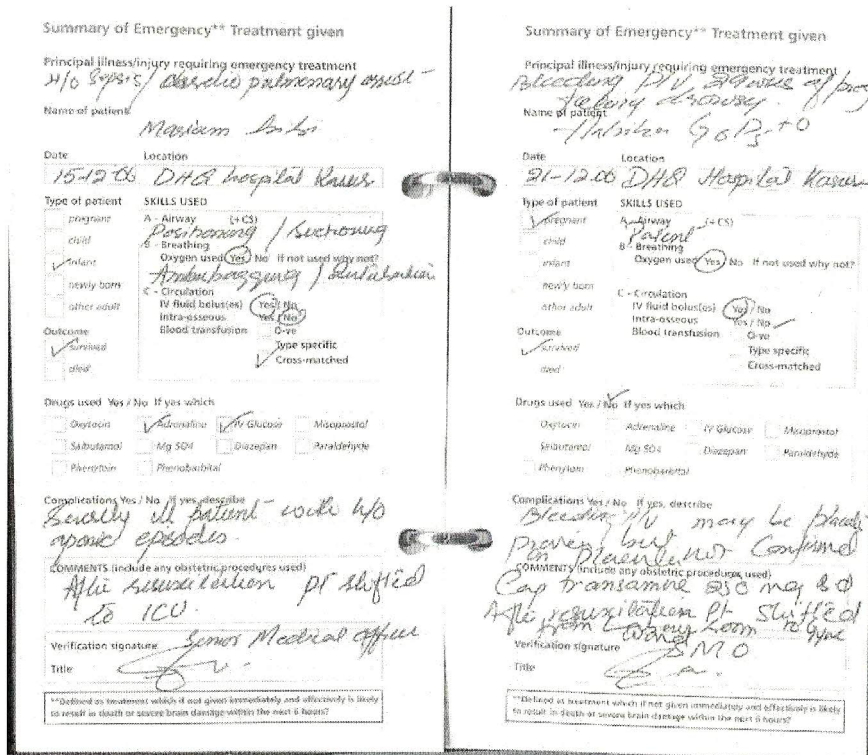 Summary of Emergency** Treatment given
Principal illness/injury requiring emergency treatment
H/O Sepsis / cardio pulmonary arrest
Name of patient
Mariam bibi
Date Location
15-12-06 DHQ hospital Kasur
Type of patient SKILLS USED
pregnant A - Airway (+CS)
Positioning / Suctioning
child B - Breathing
Oxygen used Yes/ No If not used why not?
infant
Ambubagging / intubation
newly born C - Circulation
IV fluid bolus(es) Yes / No
other adult Intra-osseous Yes / No
Blood transfusion O-ve
Outcome
Type specific
survived Cross-matched
died
Drugs used Yes / No If yes which
Oxytocin Adrenaline IV Glucose Misoprostol
Salbutamol Mg SO4 Diazepan Paraldehyde
Phenytoin Phenobarbital
Complications Yes / No If yes, describe
ill patient with h/o
apnic episodes
COMMENTS (include any obstetric procedures used)
After resuscitation pt shifted
to ICU.
Senior Medical officer
Verification signature
Title
**Defined as treatment which if not given immediately and effectively is likely
to result in death or severe brain damage within the next 6 hours?
Summary of Emergency** Treatment given
Principal illness/injury requiring emergency treatment
Bleeding P/V of
Name of patient
G6P5+0
Date Location
21-12-06 DHQ Hospital Kasur
Type of patient SKILLS USED
pregnant A - Airway (+CS)
Patent
child B - Breathing
Oxygen used Yes/ No If not used why not?
infant
newly born C - Circulation
IV fluid bolus(es) Yes / No
other adult Intra-osseous Yes / No
Blood transfusion O-ve
Outcome
Type specific
survived Cross-matched
died
Drugs used Yes / No If yes which
Oxytocin Adrenaline IV Glucose Misoprostol
Salbutamol Mg SO4 Diazepan Paraldehyde
Phenytoin Phenobarbital
Complications Yes / No If yes, describe
Bleeding P/V may be
but not Confirmed
COMMENTS (include any obstetric procedures used)
Cap transamine 250 mg
After resuscitation Pt shifted
from room to Gyne
ward
Verification signature SMO
Title
**Defined as treatment which if not given immediately and effectively is likely
to result in death or severe brain damage within the next 6 hours?